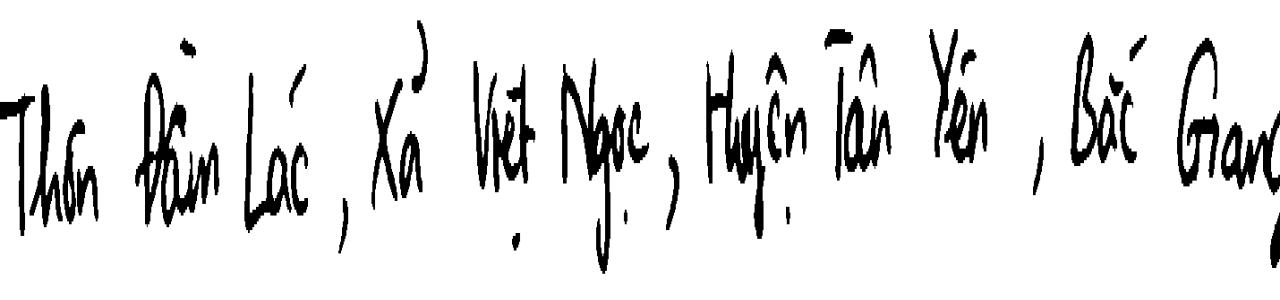 Thôn Đầm Lác, Xã Việt Ngọc, Huyện Tân Yên, Bắc Giang